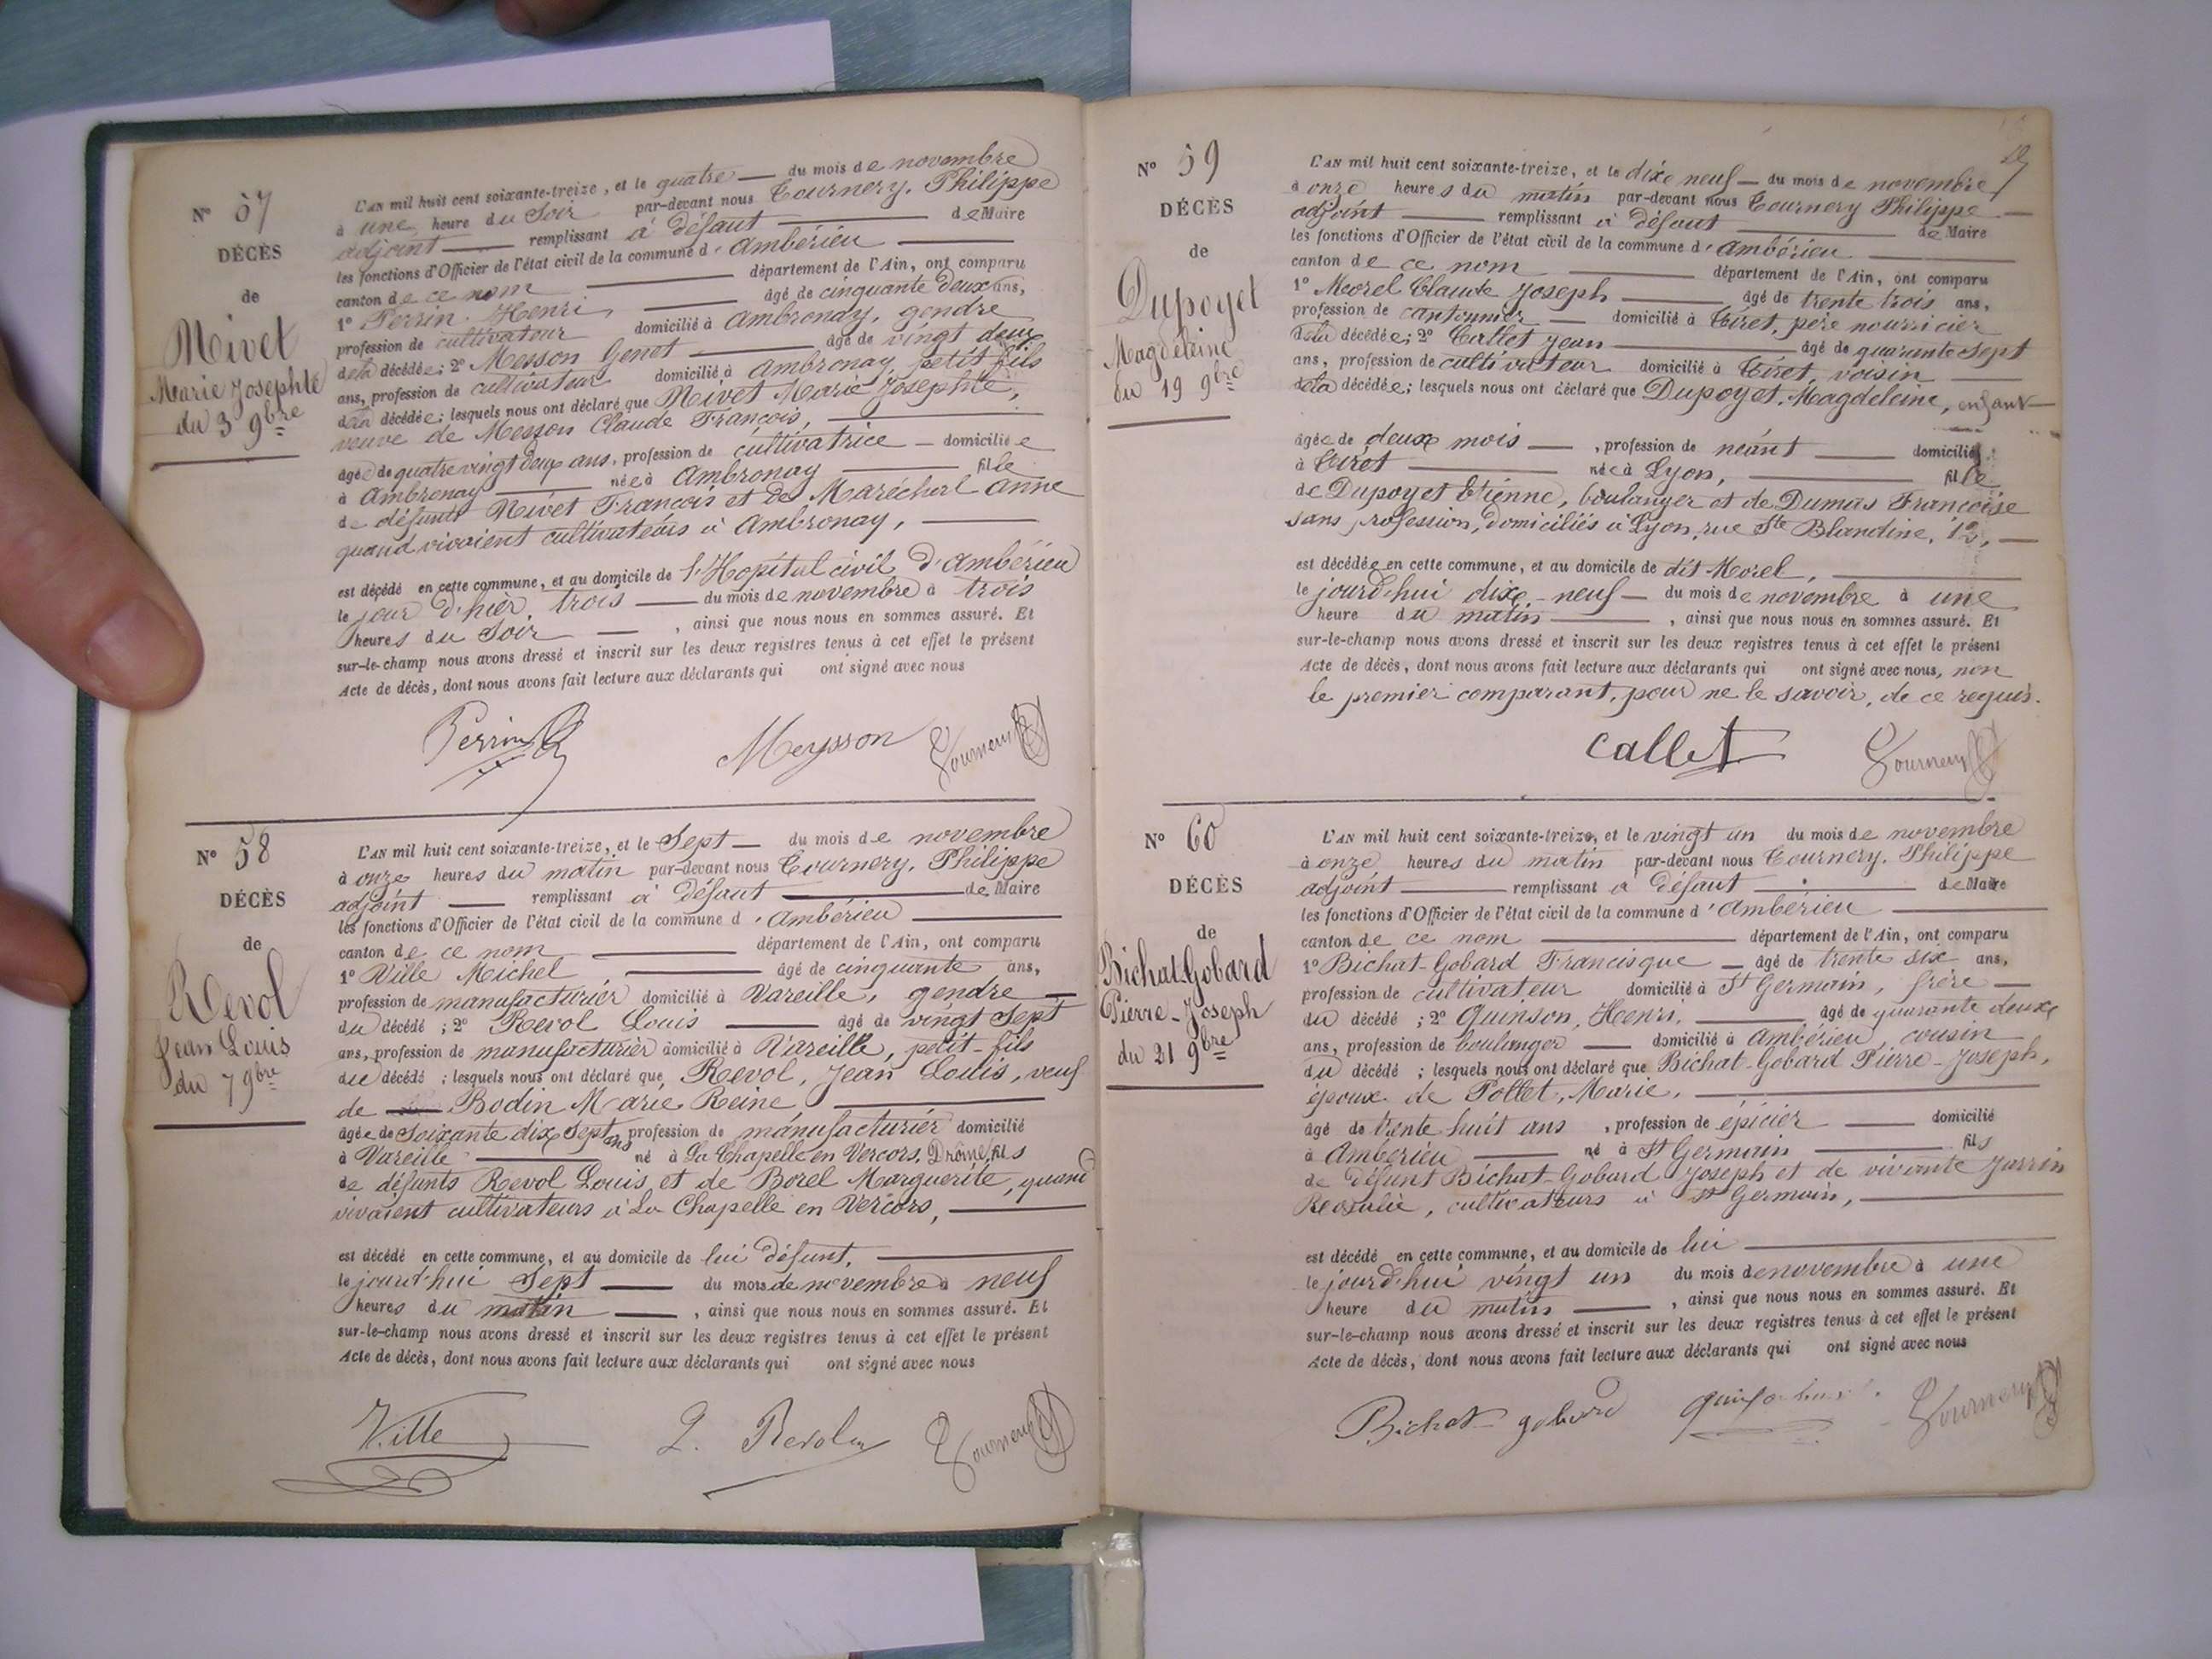 N° 57
DÉCÈS
de
Nivet
Marie Josephte
du 3 9bre
L'AN mil huit cent soixante-treize, et le quatre — du mois de novembre
à une heure du Soir par-devant nous Tournery, Philippe
adjoint — remplissant à défaut — de Maire
les fonctions d'Officier de l'état civil de la commune d'Ambérieu —
canton de ce nom — département de l'Ain, ont comparu
1° Perrin Henri — âgé de cinquante deux ans,
profession de cultivateur domicilié à Ambronay, gendre
de la décédée; 2° Messon Genet — âgé de vingt deux
ans, profession de cultivateur domicilié à Ambronay petit fils
de la décédée; lesquels nous ont déclaré que Nivet Marie Josephte,
veuve de Messon Claude François, —
âgée de quatre vingt deux ans, profession de cultivatrice — domiciliée
à Ambronay — née à Ambronay — fille
de défunts Nivet François et de Maréchal Anne
quand vivaient cultivateurs à Ambronay, —
est décédé en cette commune, et au domicile de l'Hopital civil d'Ambérieu
le jour d'hier trois — du mois de novembre à trois
heures du Soir — , ainsi que nous nous en sommes assuré. Et
sur-le-champ nous avons dressé et inscrit sur les deux registres tenus à cet effet le présent
Acte de décès, dont nous avons fait lecture aux déclarants qui ont signé avec nous
Perrin Meysson Tournery
N° 58
DÉCÈS
de
Revol
Jean Louis
du 7 9bre
L'AN mil huit cent soixante-treize, et le Sept — du mois de novembre
à onze heures du matin par-devant nous Tournery, Philippe
adjoint — remplissant à défaut — de Maire
les fonctions d'Officier de l'état civil de la commune d'Ambérieu —
canton de ce nom — département de l'Ain, ont comparu
1° Ville Michel — âgé de cinquante ans,
profession de manufacturier domicilié à Vareille, gendre —
du décédé ; 2° Revol Louis — âgé de vingt Sept
ans, profession de manufacturier domicilié à Vareille, petit-fils
du décédé ; lesquels nous ont déclaré que Revol, Jean Louis, veuf
de — Bodin Marie Reine, —
âgée de Soixante dix Sept ans profession de manufacturier domicilié
à Vareille — né à La Chapelle en Vercors, Drôme, fils
de défunts Revol Louis et de Borel Marguerite, quand
vivaient cultivateurs à La Chapelle en Vercors, —
est décédé en cette commune, et au domicile de lui défunt, —
le jourd'hui Sept — du mois de novembre à neuf
heures du matin — , ainsi que nous nous en sommes assuré. Et
sur-le-champ nous avons dressé et inscrit sur les deux registres tenus à cet effet le présent
Acte de décès, dont nous avons fait lecture aux déclarants qui ont signé avec nous
Ville L. Revol Tournery
N° 59
DÉCÈS
de
Dupoyet
Magdeleine
du 19 9bre
L'AN mil huit cent soixante-treize, et le dixe neuf — du mois de novembre
à onze heures du matin par-devant nous Tournery Philippe —
adjoint — remplissant à défaut — de Maire
les fonctions d'Officier de l'état civil de la commune d'Ambérieu —
canton de ce nom — département de l'Ain, ont comparu
1° Morel Claude Joseph — âgé de trente trois ans,
profession de cantonnier — domicilié à Tiret, père nourricier
de la décédée; 2° Callet Jean — âgé de quarante Sept
ans, profession de cultivateur domicilié à Tiret voisin —
de la décédée; lesquels nous ont déclaré que Dupoyet, Magdeleine, enfant —
âgée de deux mois — , profession de néant — domiciliée
à Tiret — née à Lyon, — fille
de Dupoyet Etienne, boulanger et de Dumas Françoise
sans profession, domiciliés à Lyon, rue Ste Blandine, 12, —
est décédée en cette commune, et au domicile de dit Morel, —
le jourd'hui dixe-neuf — du mois de novembre à une
heure du matin — , ainsi que nous nous en sommes assuré. Et
sur-le-champ nous avons dressé et inscrit sur les deux registres tenus à cet effet le présent
Acte de décès, dont nous avons fait lecture aux déclarants qui ont signé avec nous, non
le premier comparant, pour ne le savoir, de ce requis.
Callet Tournery
N° 60
DÉCÈS
de
Bichat-Gobard
Pierre-Joseph
du 21 9bre
L'AN mil huit cent soixante-treize, et le vingt un du mois de novembre
à onze heures du matin par-devant nous Tournery, Philippe
adjoint — remplissant à défaut — de Maire
les fonctions d'Officier de l'état civil de la commune d'Ambérieu —
canton de ce nom — département de l'Ain, ont comparu
1° Bichat-Gobard Francisque — âgé de trente six ans,
profession de cultivateur domicilié à St Germain, frère —
du décédé ; 2° Quinson, Henri, — âgé de quarante deux
ans, profession de boulanger — domicilié à Ambérieu, cousin
du décédé ; lesquels nous ont déclaré que Bichat-Gobard Pierre-Joseph,
époux de Pollet, Marie, —
âgé de trente huit ans , profession de épicier — domicilié
à Ambérieu — né à St Germain — fils
de défunt Bichat-Gobard Joseph et de vivante Jarrin
Rosalie, cultivateurs à St Germain, —
est décédé en cette commune, et au domicile de lui —
le jourd'hui vingt un du mois de novembre à une
heure du matin — , ainsi que nous nous en sommes assuré. Et
sur-le-champ nous avons dressé et inscrit sur les deux registres tenus à cet effet le présent
Acte de décès, dont nous avons fait lecture aux déclarants qui ont signé avec nous
Bichat gobard Tournery